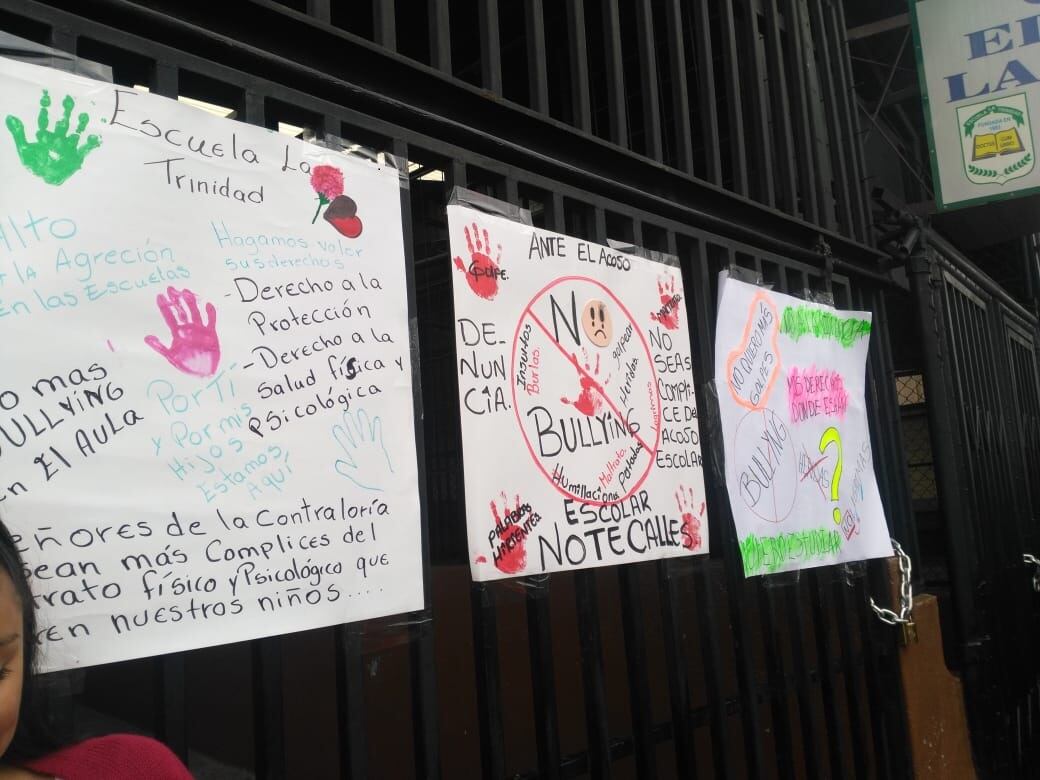 Escuela La
Trinidad
Alto
la Agreción
en las Escuelas
Hagamos valer
sus derechos
- Derecho a la
Protección
- Derecho a la
salud física y
Psicológica
mas
BULLYING
en El AulA
Por Tí
y Por mis
Hijos
Estamos
Aquí
señores de la Contraloría
sean más Complices del
trato físico y Psicológico que
en nuestros niños....
Golpe.
ANTE EL ACOSO
DE-
NUN
CIA.
NO
Insultos
Burlas
golpear
Heridas
BULLYING
Maltrato.
Patadas
Humillaciones
ESCOLAR
NO TE CALLES
NO
SEAS
COMPLI-
CE DEL
ACOSO
ESCOLAR
PALABRAS
NO QUIERO MÁS
GOLPES
MIS DERECHOS
DONDE ESTAN
?
BULLYING
ESTUDIAR
EL
LA
FUNDADA EN
DOCTUS CUM
LIBRO